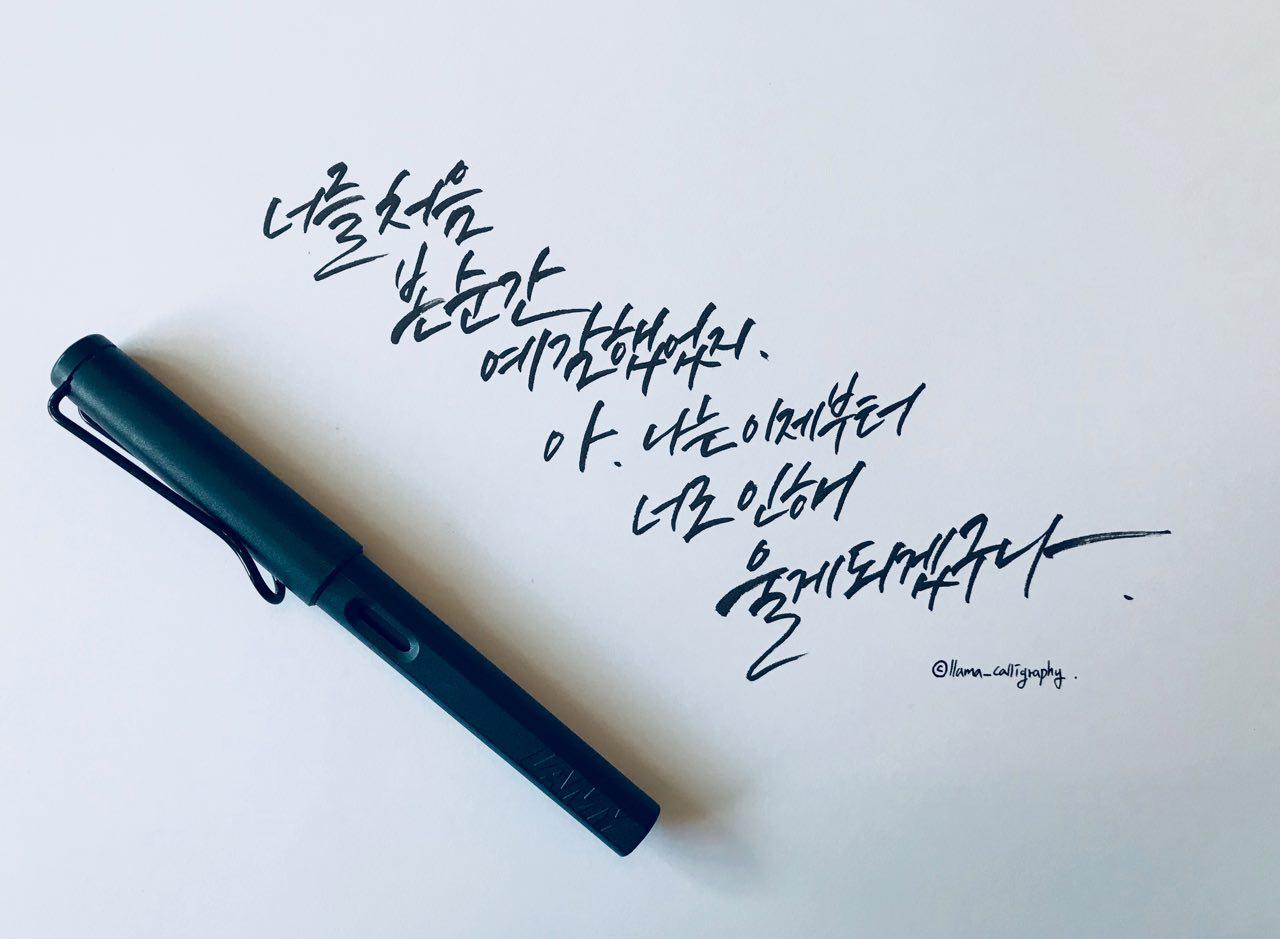 너를 처음
본 순간
예감했었지.
아. 나는 이제부터
너로 인해
울게 되겠구나.
©llama_calligraphy.
LAMY